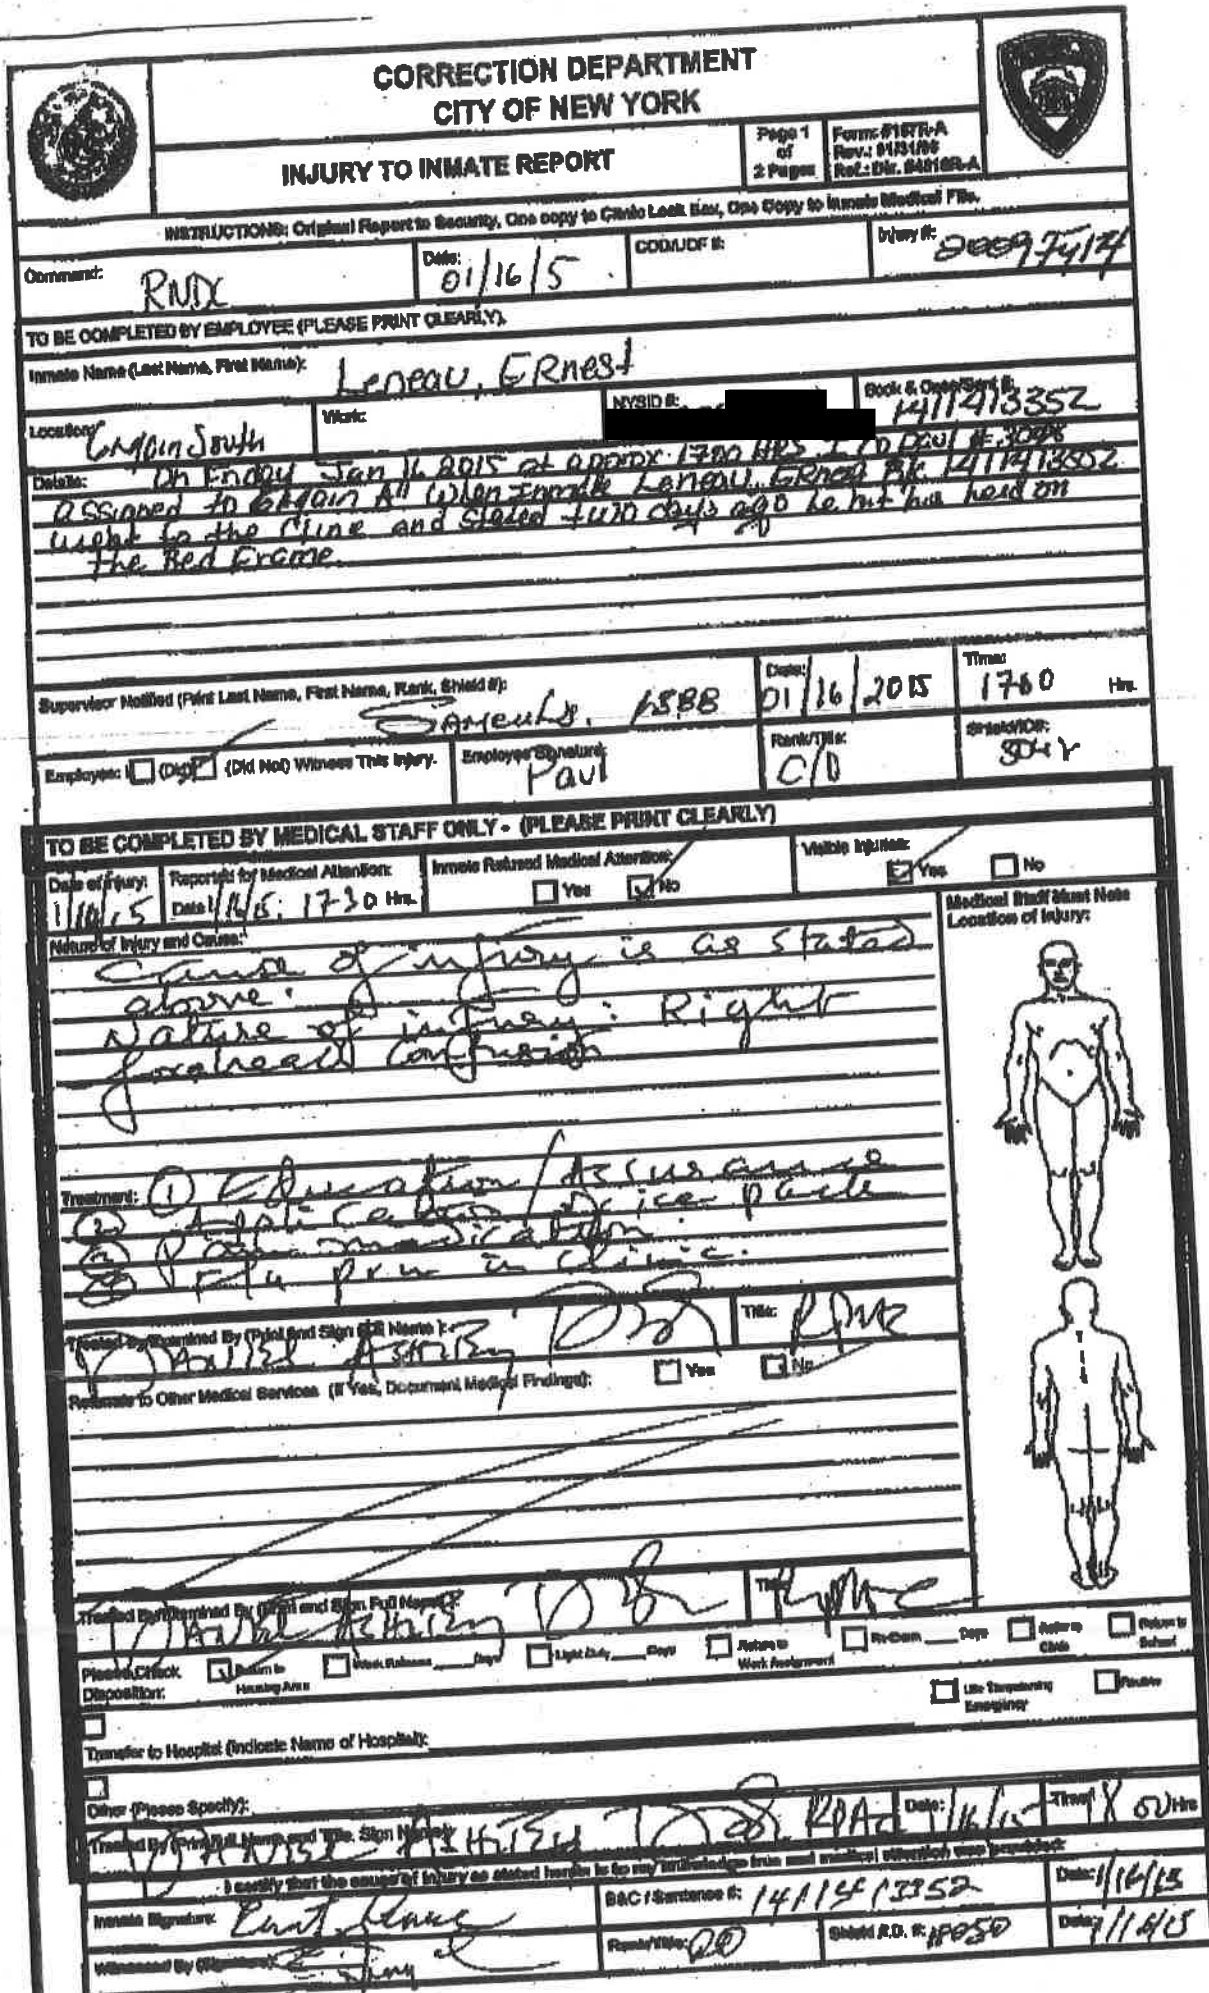 CORRECTION DEPARTMENT
CITY OF NEW YORK
INJURY TO INMATE REPORT
Page 1
of
2 Pages
Form: #167R-A
Rev.: 01/31/
Ref.: Dir. #4516R-A
INSTRUCTIONS: Original Report to Security, One copy to Clinic Lock Box, One Copy to Inmate Medical File.
Command: RNDC
Date: 01/16/5
COD/UOF #:
Injury #:
TO BE COMPLETED BY EMPLOYEE (PLEASE PRINT CLEARLY).
Inmate Name (Last Name, First Name): Leneau, ERnest
Location: 6 Main South
Work:
NYSID #:
Book & Case/Sent #: 1411413352
Details: On Friday Jan 16 2015 at approx. 1700 HRS I C/O Paul #
assigned to 6 Main when Inmate Leneau, ERnest B/C 1411413352
to the Clinic and Stated two days ago he hit his head on
the Bed Frame.
Supervisor Notified (Print Last Name, First Name, Rank, Shield #):
Date: 01/16/2015
Time: 1700 Hrs.
Employee: I (Did) (Did Not) Witness This Injury.
Employee Signature: Paul
Rank/Title: C/O
Shield/ID#:
TO BE COMPLETED BY MEDICAL STAFF ONLY - (PLEASE PRINT CLEARLY)
Date of Injury:
Reported for Medical Attention:
Date 1/16/15: 1730 Hrs.
Inmate Refused Medical Attention:
Yes No
Visible Injuries:
Yes No
Medical Staff Must Note
Location of Injury:
Nature of Injury and Cause:
Cause of injury is as stated
above.
Nature of injury: Right
forehead contusion
Treatment: (1) Education/Assurance
(2) Application of ice pack
(3) Pain medication
(4) F/u prn in clinic.
Treated By/Examined By (Print and Sign Full Name):
Title:
Referrals to Other Medical Services (If Yes, Document Medical Findings):
Yes No
Treated By/Examined By (Print and Sign Full Name):
Title:
Please Check
Disposition:
Return to
Housing Area
Work Release ____ Days
Light Duty ____ Days
Return to
Work Assignment
Re-Exam ____ Days
Refer to
Clinic
Return to
School
Life Threatening
Emergency
Routine
Transfer to Hospital (Indicate Name of Hospital):
Other (Please Specify):
Treated By (Print Full Name and Title, Sign Name):
Date: 1/16/15
Time: 1800 Hrs
I certify that the cause of injury as stated herein is to my knowledge true and medical attention was provided:
Inmate Signature:
B&C / Sentence #: 1411413352
Date: 1/16/15
Witnessed By (Signature):
Rank/Title:
Shield /I.D. #:
Date: 1/16/15